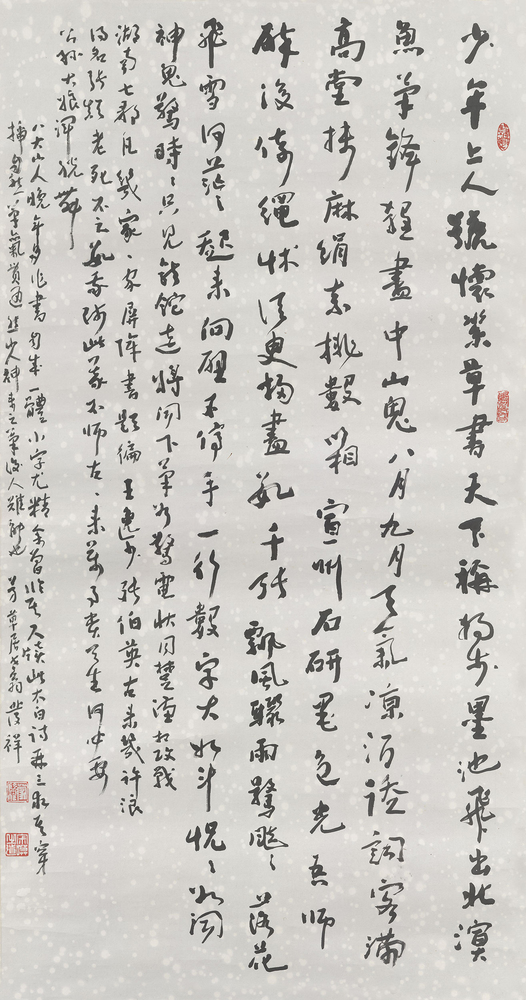 少年上人號懷素草書天下稱獨步墨池飛出北溟
魚筆鋒殺盡中山兔八月九月天氣涼酒徒詞客滿
高堂牋麻絹素排數箱宣州石硯墨色光吾師
醉後倚繩牀須臾掃盡數千張飄風驟雨驚颯颯落花
飛雪何茫茫起來向壁不停手一行數字大如斗怳怳如聞
神鬼驚時時只見龍蛇走左盤右蹙如驚電狀同楚漢相攻戰
湖南七郡凡幾家家家屏障書題徧王逸少張伯英古來幾許浪
得名張顛老死不足數我師此義不師古古來萬事貴天生何必要
公孫大娘渾脫舞
八大山人晚年多作書自成一體小字尤精余曾臨其尺牘此太白詩再三取其
筆氣貫通然山人神來之筆後人難師也 草居士翁 祥